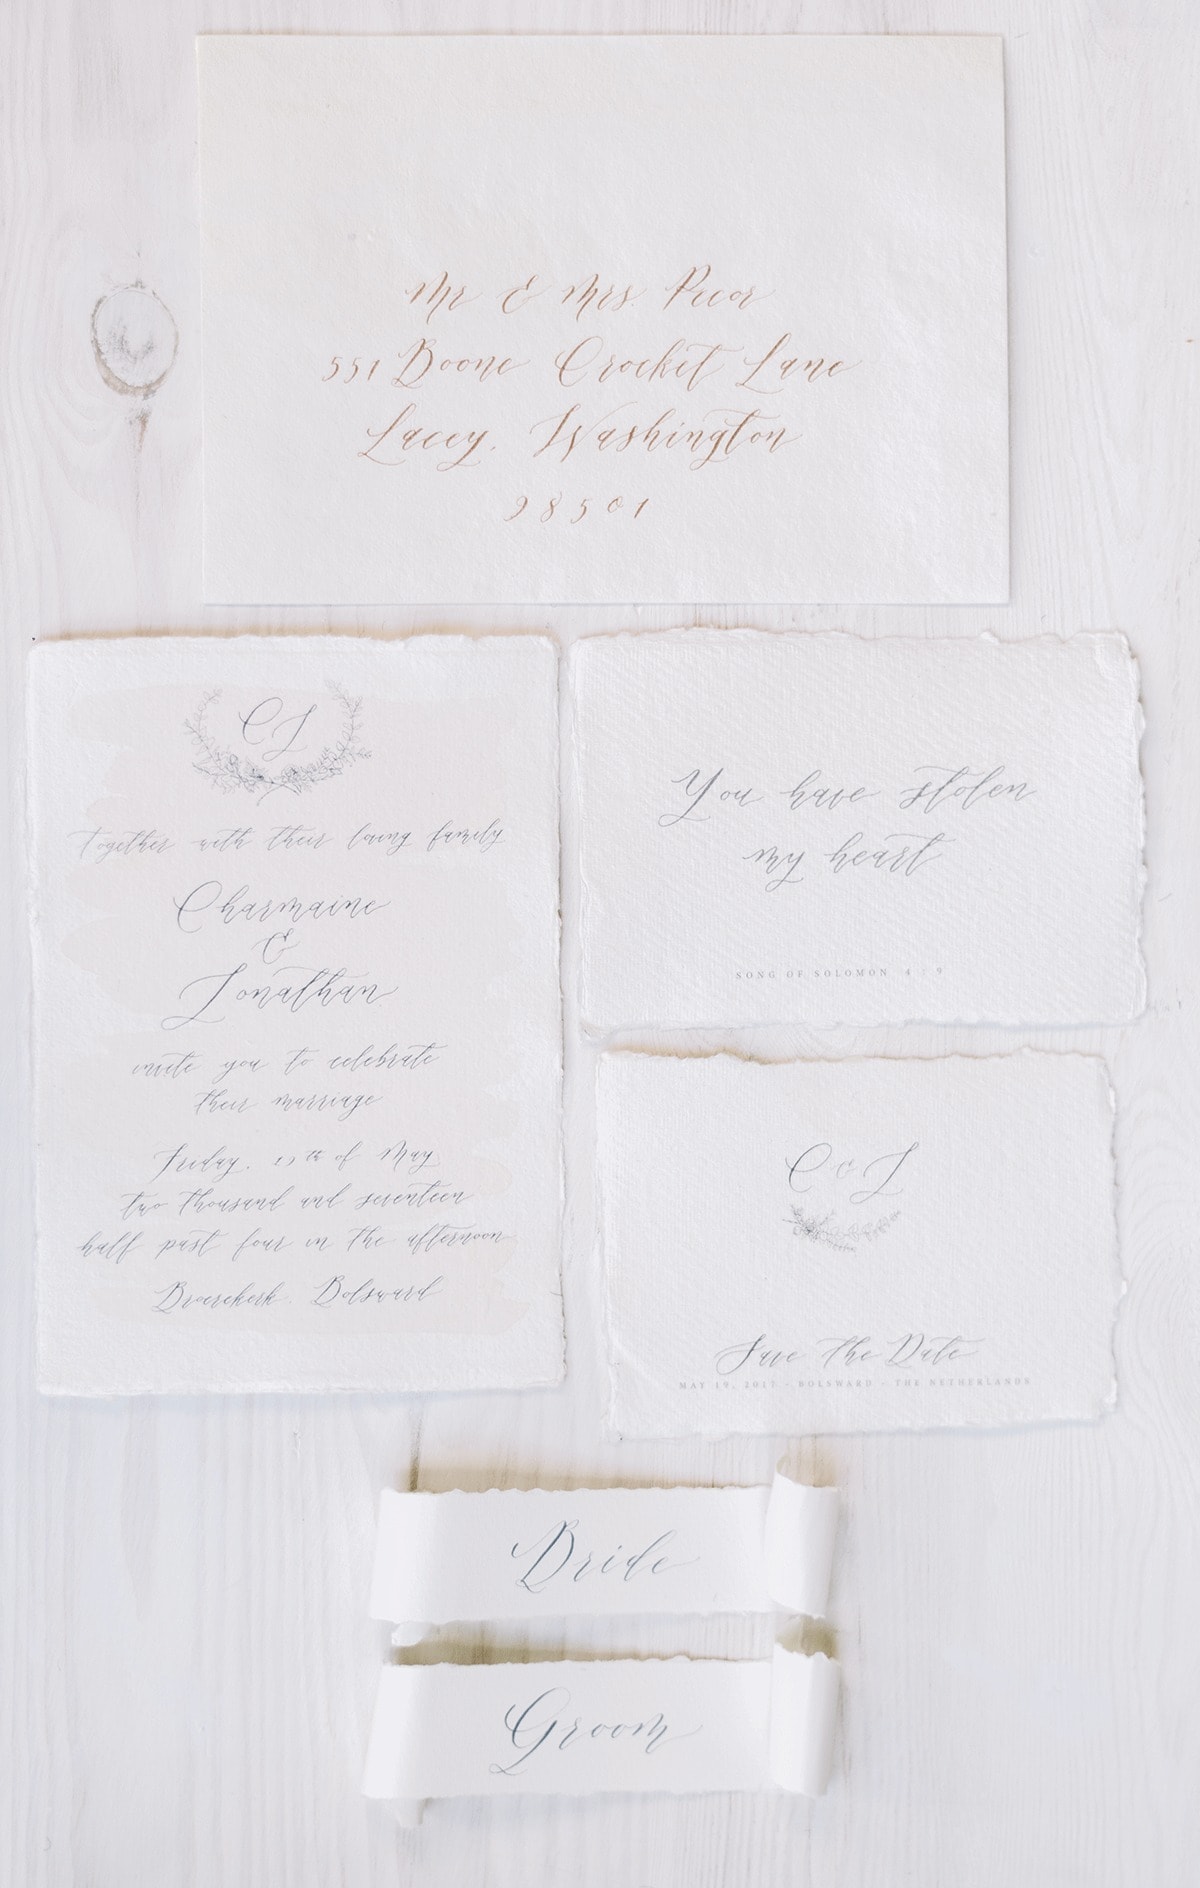 Mr & Mrs. Pecor
551 Boone Crocket Lane
Lacey, Washington
98501
CJ
Together with their loving family
Charmaine
&
Jonathan
invite you to celebrate
their marriage
Friday, 19th of May
two thousand and seventeen
half past four in the afternoon
Broerekerk, Bolsward
You have stolen
my heart
SONG OF SOLOMON 4 : 9
C & J
Save The Date
MAY 19, 2017 - BOLSWARD - THE NETHERLANDS
Bride
Groom